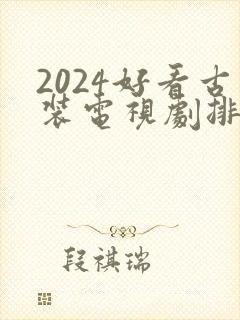 2024好看古
裝電視劇排
段祺瑞